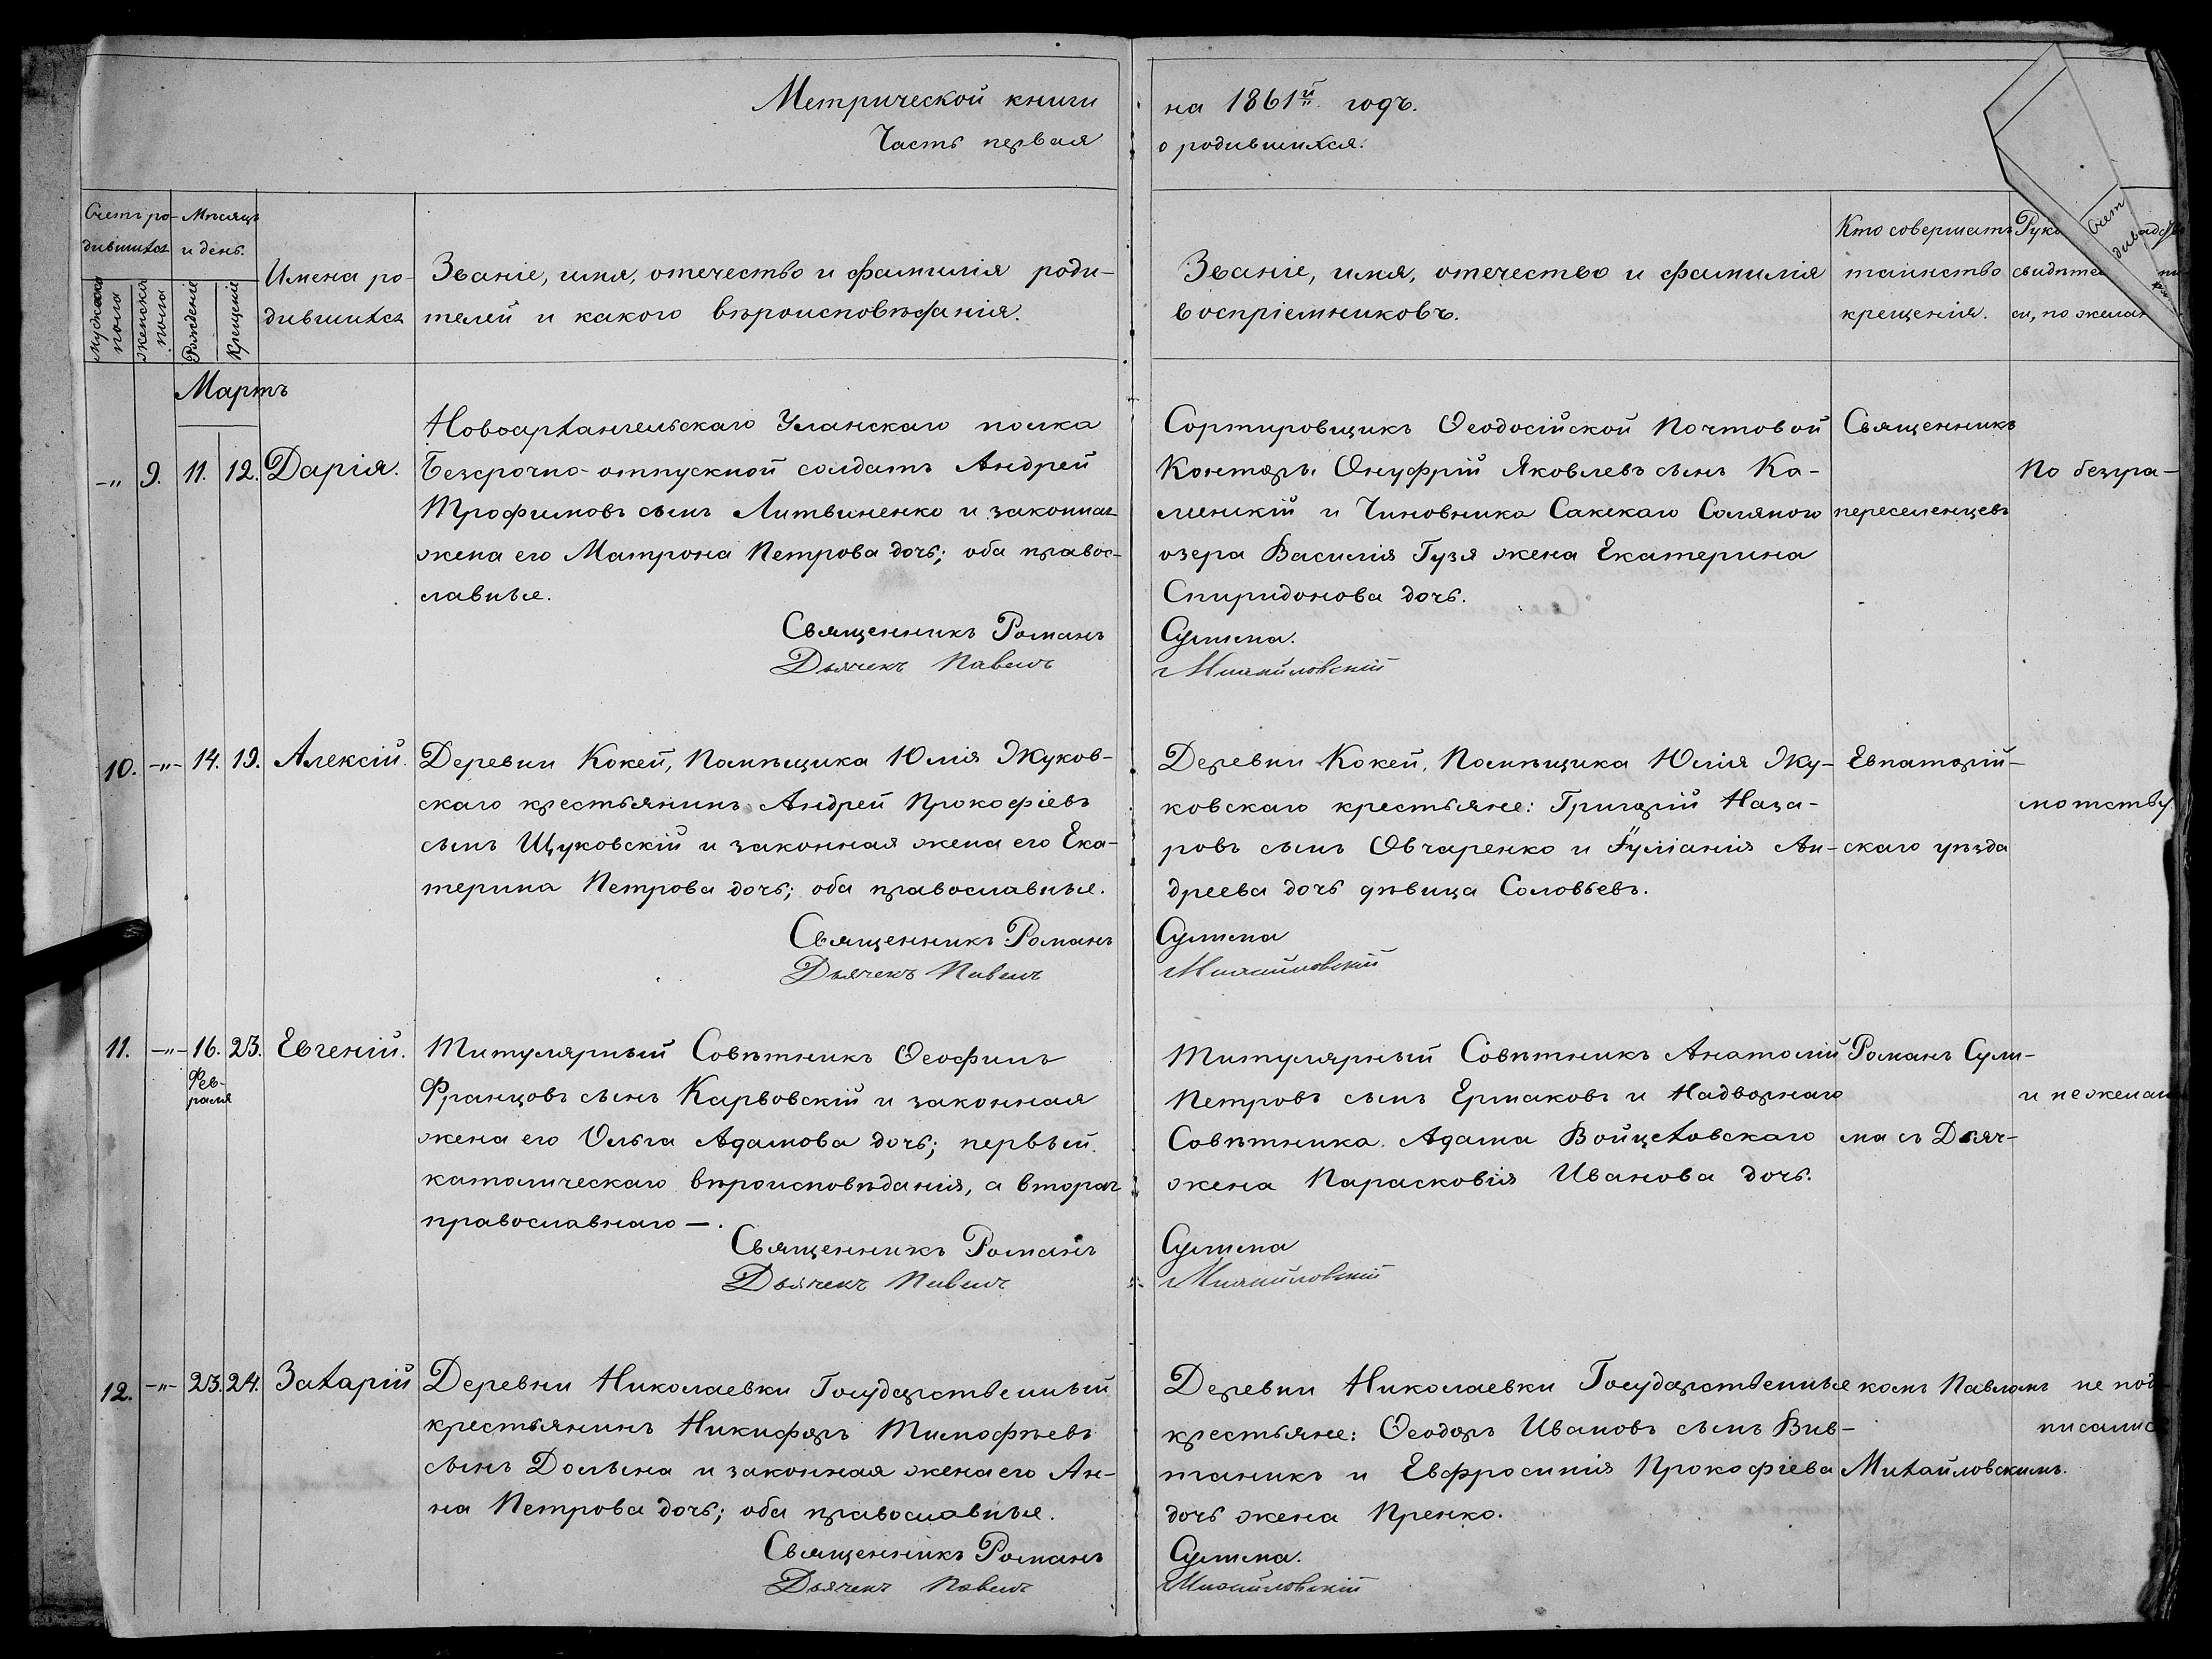 Метрической книги
Часть первая
на 1861й годъ.
о родившихся.
Счетъ ро-
дившихся
Мѣсяцъ
и день.
Мужеска
пола
Женска
пола
Рожденіе
Крещеніе
Имена ро-
дившихся
Званіе, имя, отечество и фамилія роди-
телей и какого вѣроисповѣданія.
Званіе, имя, отечество и фамилія
воспріемниковъ.
Кто совершалъ
таинство
крещенія.
Рук
свидѣте
си, по желан
Счет
Мартъ
-„ 9. 11. 12. Дарія.
Новоархангельскаго Уланскаго полка
Безсрочно-отпускной солдатъ Андрей
Трофимовъ сынъ Литвиненко и законная
жена его Матрона Петрова дочь; оба правос-
лавные.
Священникъ Романъ
Дьячекъ Павелъ
Сортировщикъ Ѳеодосійской Почтовой
Конторы Онуфрій Яковлевъ сынъ Ка-
менскій и Чиновника Сакскаго Солянаго
озера Василія Гузя жена Екатерина
Спиридонова дочь.
Сулима.
Михайловскій
Священникъ
переселенцевъ
По безгра-
10. -„- 14. 19. Алексій.
Деревни Кокей, Помѣщика Юлія Жуков-
скаго крестьянинъ Андрей Прокофіевъ
сынъ Щуковскій и законная жена его Ека-
терина Петрова дочь; оба православные.
Священникъ Романъ
Дьячекъ Павелъ
Деревни Кокей, Помѣщика Юлія Жу-
ковскаго крестьяне: Григорій Наза-
ровъ сынъ Овчаренко и Іуліанія Ан-
дреева дочь дѣвица Соловьевъ.
Сулима
Михайловскій
Евпаторій-
скаго уѣзда
мотству
11. -„- 16. 23. Евгеній.
Фев-
раля
Титулярный Совѣтникъ Ѳеофилъ
Францовъ сынъ Карвовскій и законная
жена его Ольга Адамова дочь; первый
католическаго вѣроисповѣданія, а вторая
православнаго —.
Священникъ Романъ
Дьячекъ Павелъ
Титулярный Совѣтникъ Анатолій
Петровъ сынъ Ермаковъ и Надворнаго
Совѣтника Адама Войцеховскаго
жена Парасковія Иванова дочь.
Сулима
Михайловскій
Романъ Сули-
ма съ Дьяч-
и не желан
12. -„- 23. 24. Захарій
Деревни Николаевки Государственный
крестьянинъ Никифоръ Тимофѣевъ
сынъ Долина и законная жена его Ан-
на Петрова дочь; оба православные.
Священникъ Романъ
Дьячекъ Павелъ
Деревни Николаевки Государственные
крестьяне: Ѳеодоръ Ивановъ сынъ Вив-
таникъ и Евфросинія Прокофіева
дочь жена Пренко.
Сулима.
Михайловскій
комъ Павломъ
Михайловскимъ.
не под
писалис